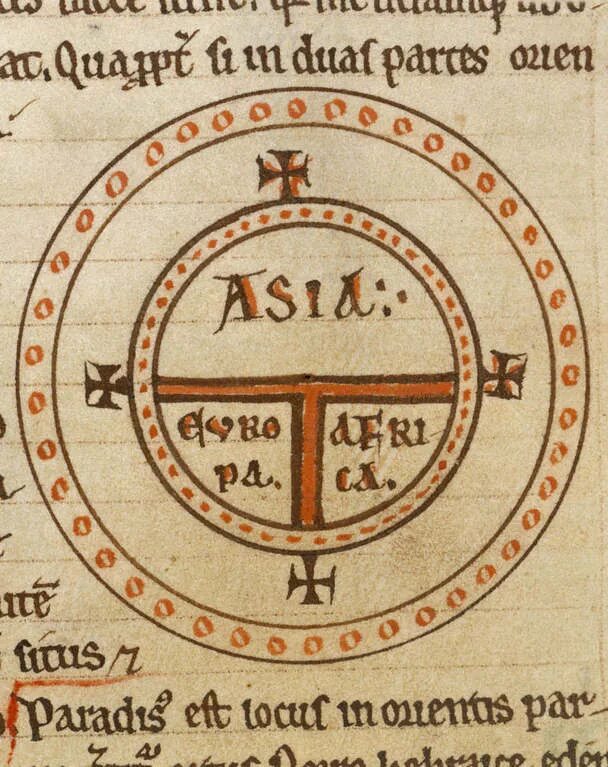 at. Quapp̄t si in duas partes orien
ASIA
EURO
PA.
AFRI
CA.
itē
situs ⁊
Paradisꝰ est locus in orientis par
hebraice eden